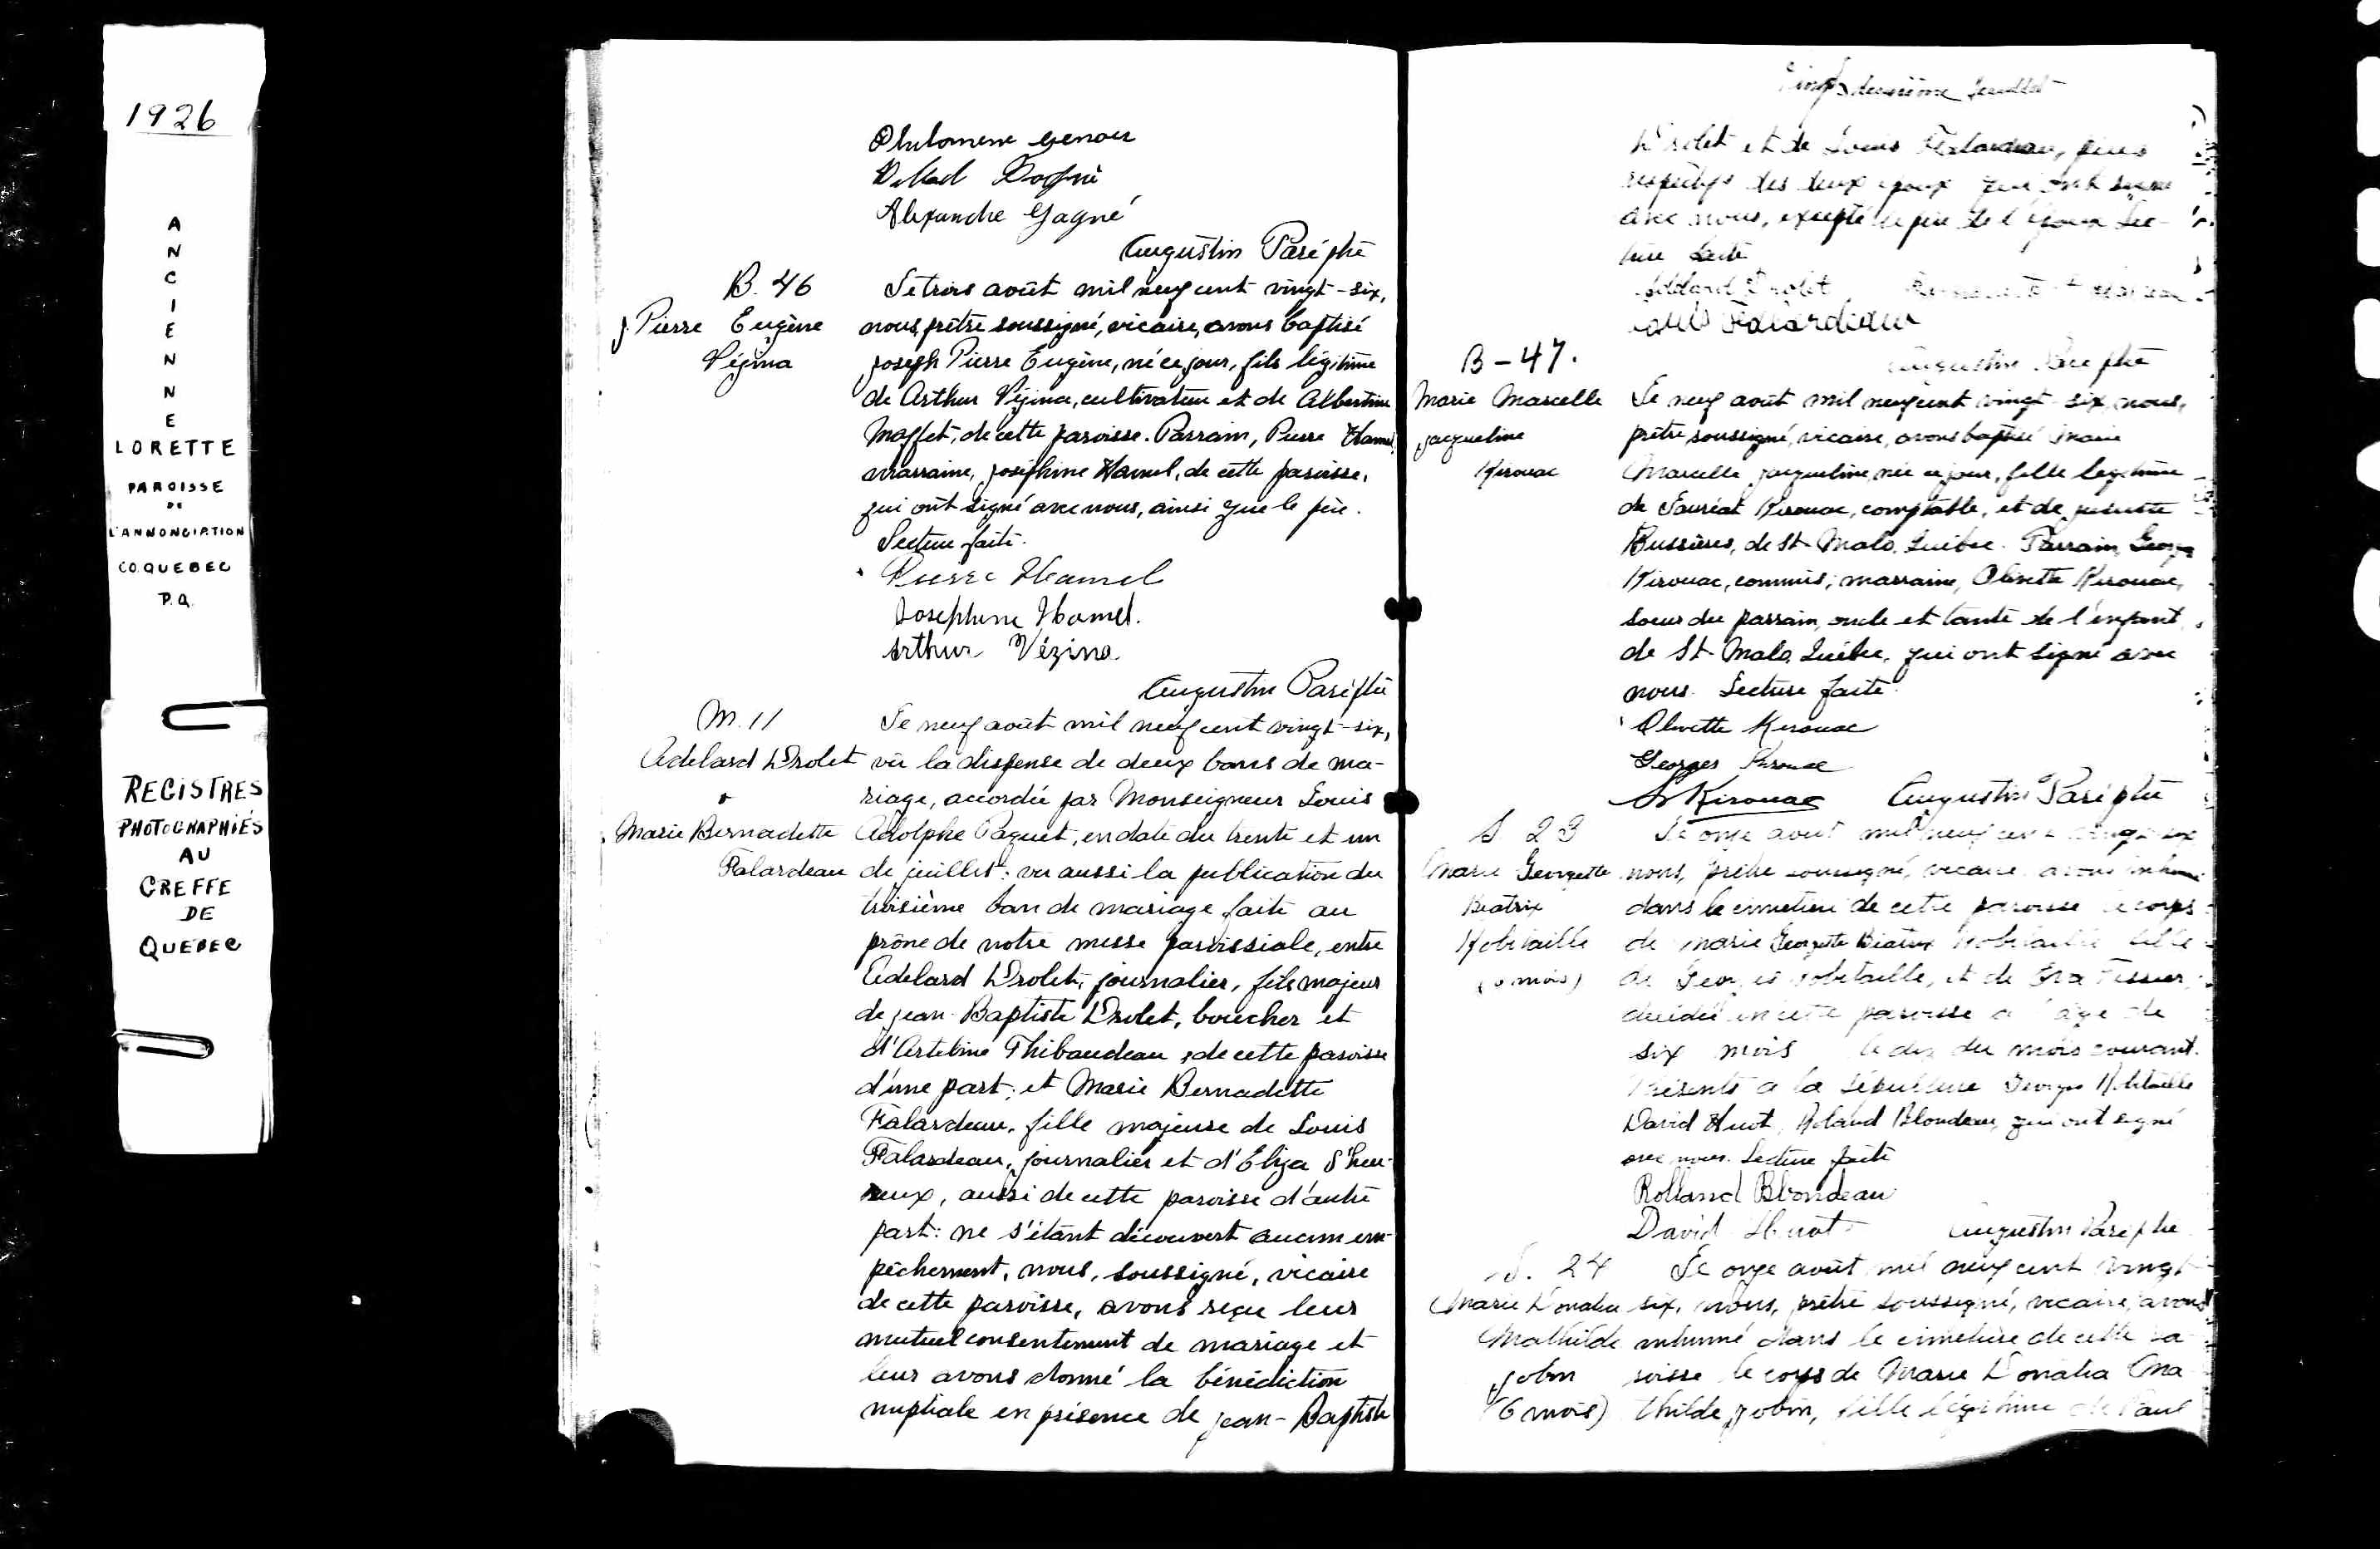 1926
ANCIENNE
LORETTE
PAROISSE
DE
L'ANNONCIATION
CO. QUEBEC
P.Q.
REGISTRES
PHOTOGRAPHIÉS
AU
GREFFE
DE
QUEBEC
Alexandre Gagné
Augustin Paré ptre
B. 46
J. Pierre Eugène
Vézina
Le trois août mil neuf cent vingt-six,
nous, prêtre soussigné, vicaire, avons baptisé
Joseph Pierre Eugène, né ce jour, fils légitime
de Arthur Vézina, cultivateur et de Albertine
Moffet, de cette paroisse. Parrain, Pierre Hamel,
marraine, Joséphine Hamel, de cette paroisse,
qui ont signé avec nous, ainsi que le père.
Lecture faite.
Pierre Hamel
Josephine Hamel.
Arthur Vézina
Augustin Paré ptre
M. 11
Adelard Drolet
&
Marie Bernadette
Falardeau
Le neuf août mil neuf cent vingt-six,
vu la dispense de deux bans de ma-
riage, accordée par Monseigneur Louis
Adolphe Paquet, en date du trente et un
de juillet; vu aussi la publication du
troisième ban de mariage faite au
prône de notre messe paroissiale, entre
Adelard Drolet, journalier, fils majeur
de Jean-Baptiste Drolet, boucher et
Thibaudeau, de cette paroisse
d'une part; et Marie Bernadette
Falardeau, fille majeure de Louis
Falardeau, journalier et d'Eliza L'heu-
reux, aussi de cette paroisse d'autre
part: ne s'étant découvert aucun em-
pêchement, nous, soussigné, vicaire
de cette paroisse, avons reçu leur
mutuel consentement de mariage et
leur avons donné la bénédiction
nuptiale en présence de Jean-Baptiste
Vingt-deuxième feuillet
Drolet et de Louis Falardeau, pères
respectifs des deux époux qui ont signé
avec nous, excepté le père de l'époux Lec-
ture faite
Adélard Drolet
Louis Falardeau
Augustin Paré ptre
B-47.
Marie Marcelle
Jacqueline
Kirouac
Le neuf août mil neuf cent vingt-six, nous,
prêtre soussigné, vicaire, avons baptisé Marie
Marcelle Jacqueline, née ce jour, fille légitime
de Lauréat Kirouac, comptable, et de
Bussières, de St-Malo, Québec. Parrain, Georges
Kirouac, commis; marraine, Olivette Kirouac,
soeur du parrain, oncle et tante de l'enfant,
de St-Malo, Québec, qui ont signé avec
nous. Lecture faite.
Olivette Kirouac
Georges Kirouac
L Kirouac Augustin Paré ptre
S. 23
Marie Georgette
Béatrix
Robitaille
(6 mois)
Le onze août mil neuf cent vingt-six
nous, prêtre soussigné, vicaire avons inhumé
dans le cimetière de cette paroisse le corps
de Marie Georgette Béatrix Robitaille fille
de Georges Robitaille, et de Eva Tessier,
décédée en cette paroisse à l'âge de
six mois le dix du mois courant.
Présents à la sépulture Georges Robitaille
David Huot, Roland Blondeau, qui ont signé
avec nous. Lecture faite
Rolland Blondeau
David Huot Augustin Paré ptre
S. 24
Marie Donalia
Mathilde
Jobin
(6 mois)
Le onze août mil neuf cent vingt-
six, nous, prêtre soussigné, vicaire, avons
inhumé dans le cimetière de cette pa-
roisse le corps de Marie Donalia Ma-
thilde Jobin, fille légitime de Paul